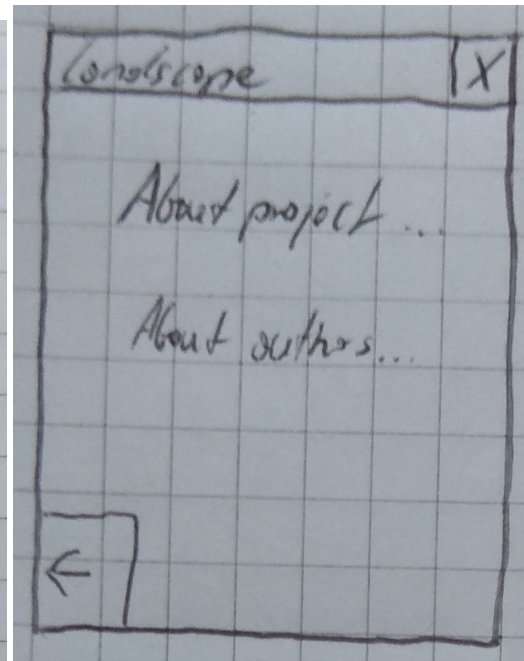 Landscape X
About project...
About authors...
←